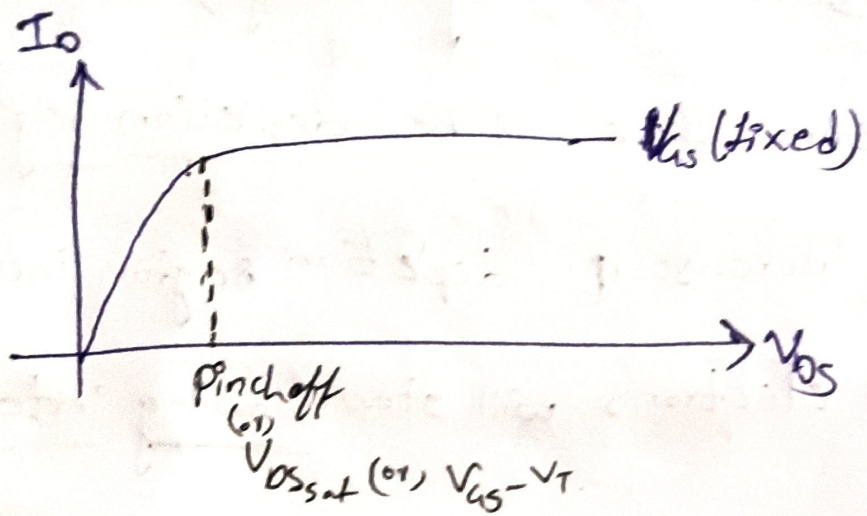 I_D
V_GS (fixed)
V_DS
Pinchoff
(or)
V_DSsat (or) V_GS - V_T